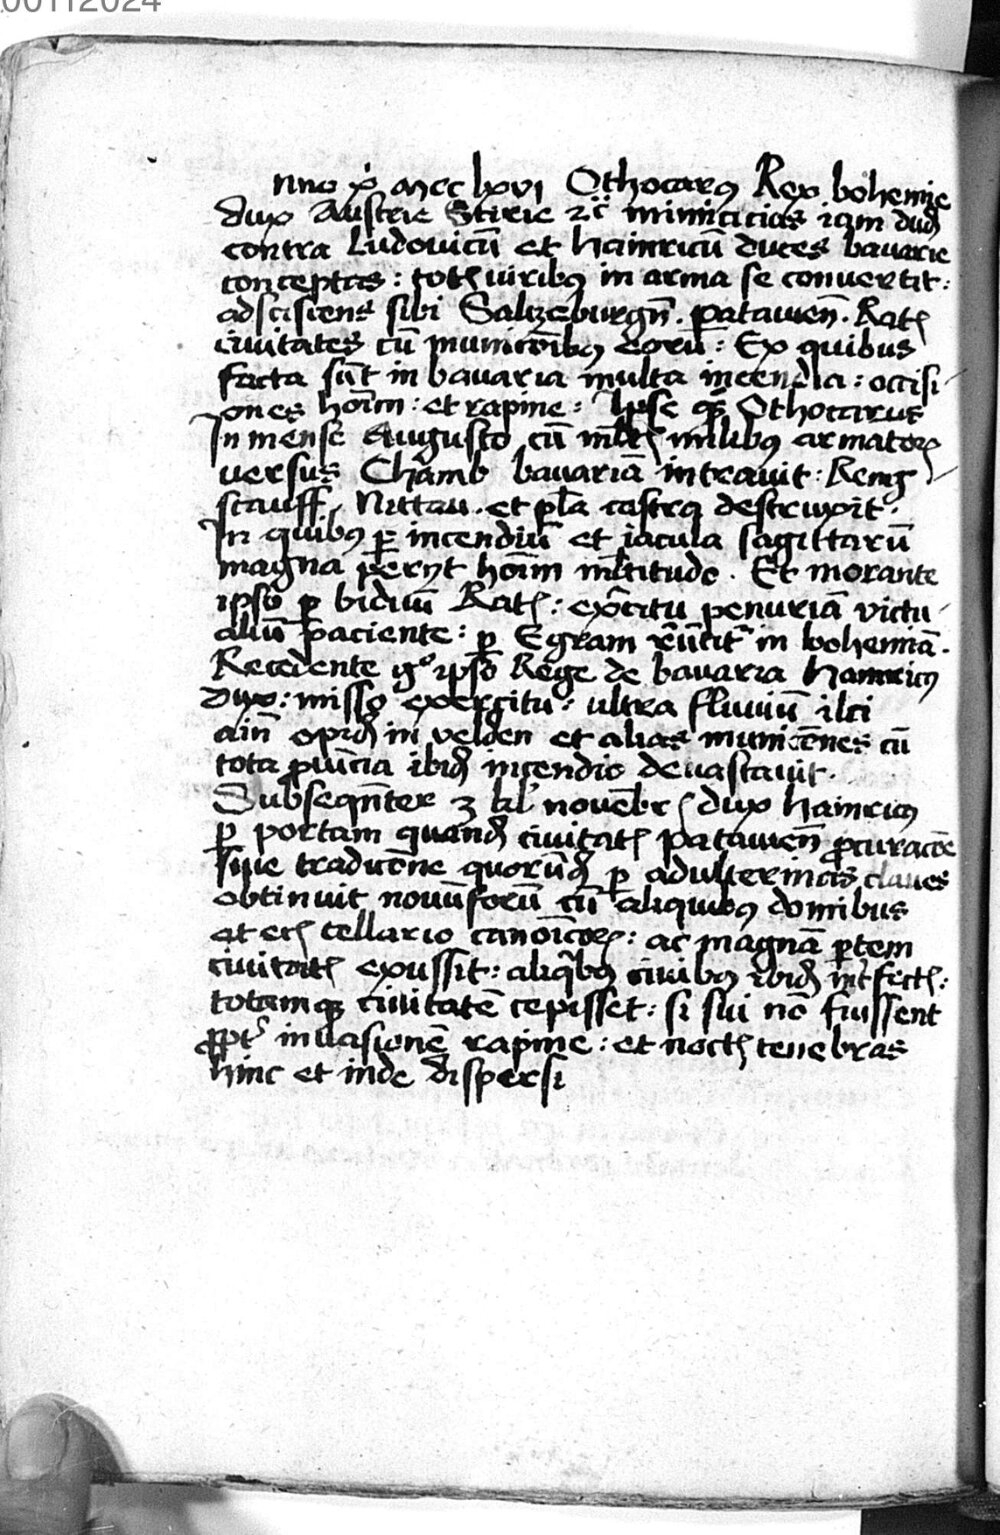 00112024
nno xp̄i Mcc lxvi Othocarꝯ Rex bohemie
dux Austrie Stirie ⁊c̄ inimicicias iam dudꝫ
contra Ludovicū et hainricū duces bavarie
conceptas : totꝭ viribꝯ in arma se convertit :
adsciscens sibi Saltzeburgn̄ . patavien̄ . Ratꝭ
civitates cū municōibꝯ eorū : Ex quibus
facta sūt in bavaria multa incendia : occisi
ones hoīm : et rapine : Ipse qꝫ Othocarus
In mense Augusto cū ml̄tꝭ milibꝯ armatoꝝ
versus Chamb bavariā intravit : Reng
stauff Nittau . et pl̄a castra destruxit .
In quibꝯ ꝑ incendiū et iacula sagittarū
magna periit hoīm ml̄titudo . Et morante
ipso ꝑ biduū Ratꝭ : exc̄itu penuriā victu
aliū paciente : ꝑ Egram rev̄tit᷑ in bohemiā .
Recedente gͦ ipso Rege de bavaria hainricꝯ
dux : misso exercitu : ultra fluviū
opidꝫ in velden et alias municōnes cū
tota ꝓvīcia ibidꝫ incendio devastavit .
Subseqn̄ter 3 kl̄ novēbrꝭ dux hainricꝯ
ꝑ portam quandꝫ civitatꝭ patavien̄ ꝓcuracōe
sive tradicōne quorūdꝫ ꝑ adulterinas claves
obtinuit novūforū cū aliquibꝯ domibus
et ecꝭ cellario canoīcoꝝ : ac magnā ꝑtem
civitatꝭ exussit : aliqͥbꝯ civibꝯ ibidꝫ int̄fectꝭ :
totamqꝫ civitatē cepisset : si sui nō fuissent
ꝓpt᷑ invasionē rapine : et noctꝭ tenebras
hinc et inde dispersi